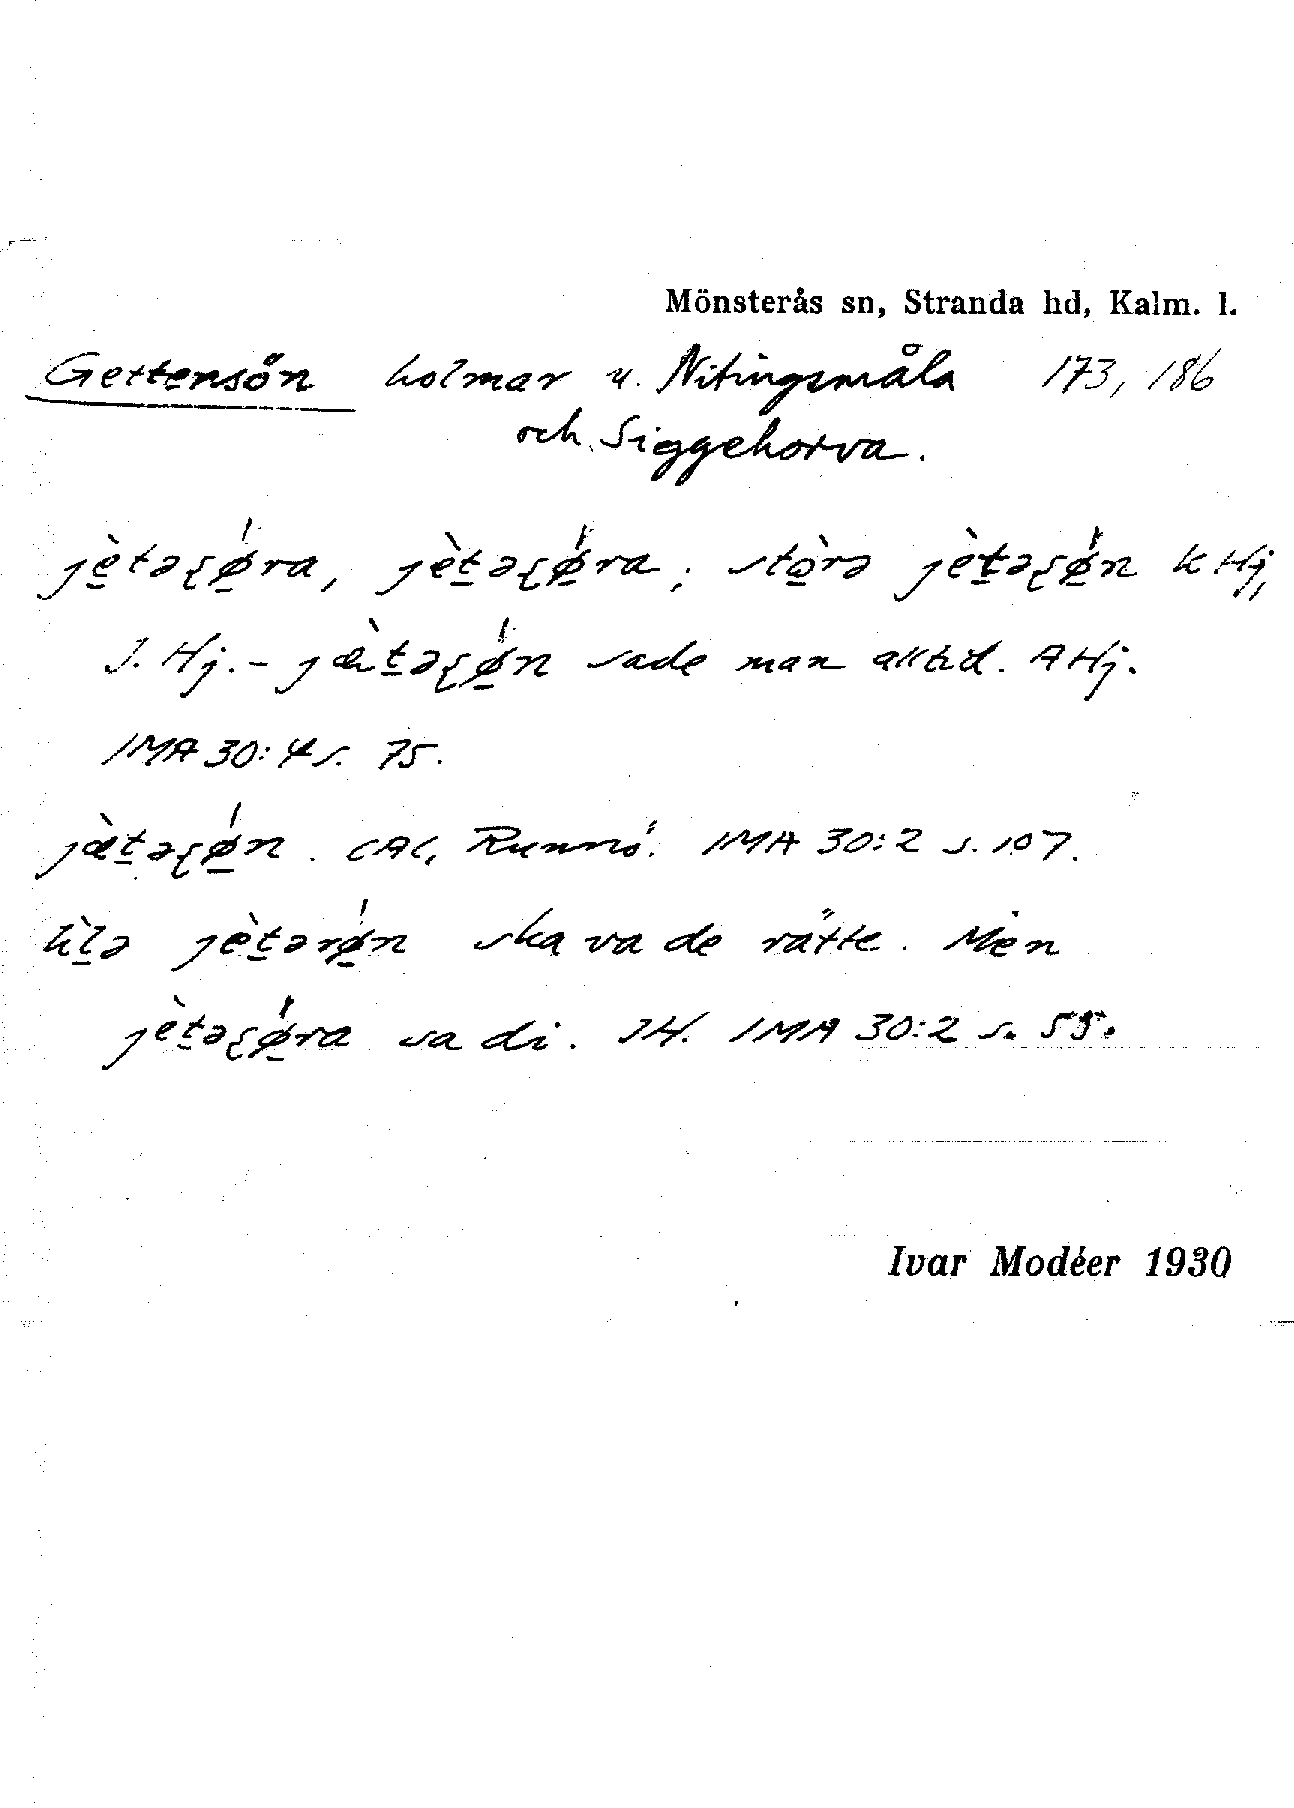 Mönsterås sn, Stranda hd, Kalm. l.
Gettensön holmar u. Nitingsmåla 173, 186
och Siggehorva.
jètəʂǿra, jètəʂǿra, stòrə jètəʂǿn KHj,
J. Hj. - jæ̀təʂǿn sade man alltid. AHj.
IMA 30:4 s. 75.
jæ̀təʂǿn. CAC, Runnö. IMA 30:2 s. 107.
lìlə jètərǿn ska va de rätte. Men
jètəʂǿra sa di. JH. IMA 30:2 s. 55.
Ivar Modéer 1930